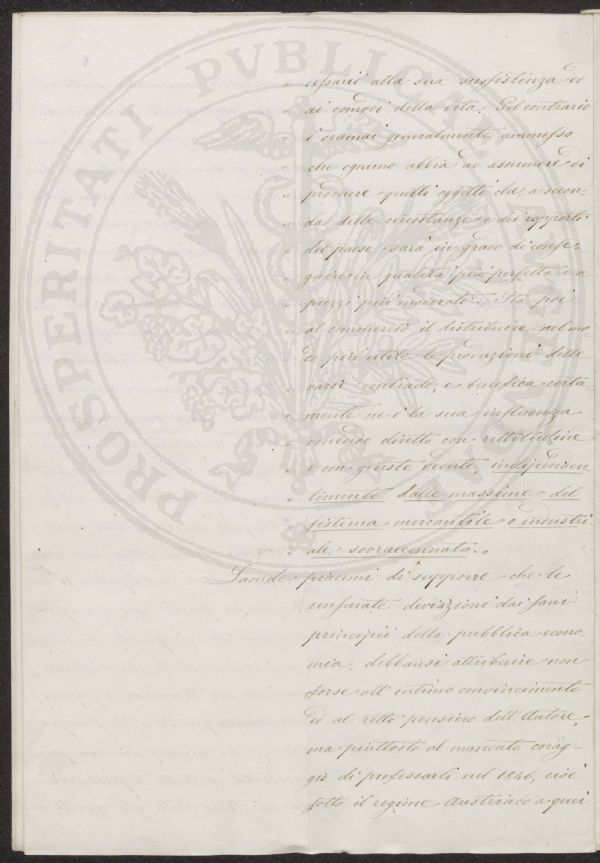 PROSPERITATI PVBLICAE AVGENDAE
" cessario alla sua sussistenza ed
" ai comodi della vita. Pel contrario
" è oramai generalmente ammesso
" che ognuno abbia ad assumere di
" produrre quelli oggetti che, a secon-
" da delle circostanze e dei rapporti
" del paese sarà in grado di conse-
" guire in qualità più perfetta e a
" prezzi più moderati. Sta poi
" al commercio il distribuire nel mo-
" do più utile le produzioni delle
" varie contrade, e benefica certa-
" mente ne è la sua influenza
" venendo diretto con rettitudine
" e con giuste vedute, indipenden-
" temente dalle massime del
" sistema mercantile o industri-
" ale sovraccennato. "
Laonde piacemi di supporre che le
censurate deviazioni dai sani
principii della pubblica econo-
mia, debbansi attribuire non
forse all'intimo convincimento
ed al retto pensiero dell'Autore,
ma piuttosto al mancato corag-
gio di professarli nel 1846, cioè
sotto il regime Austriaco a quei